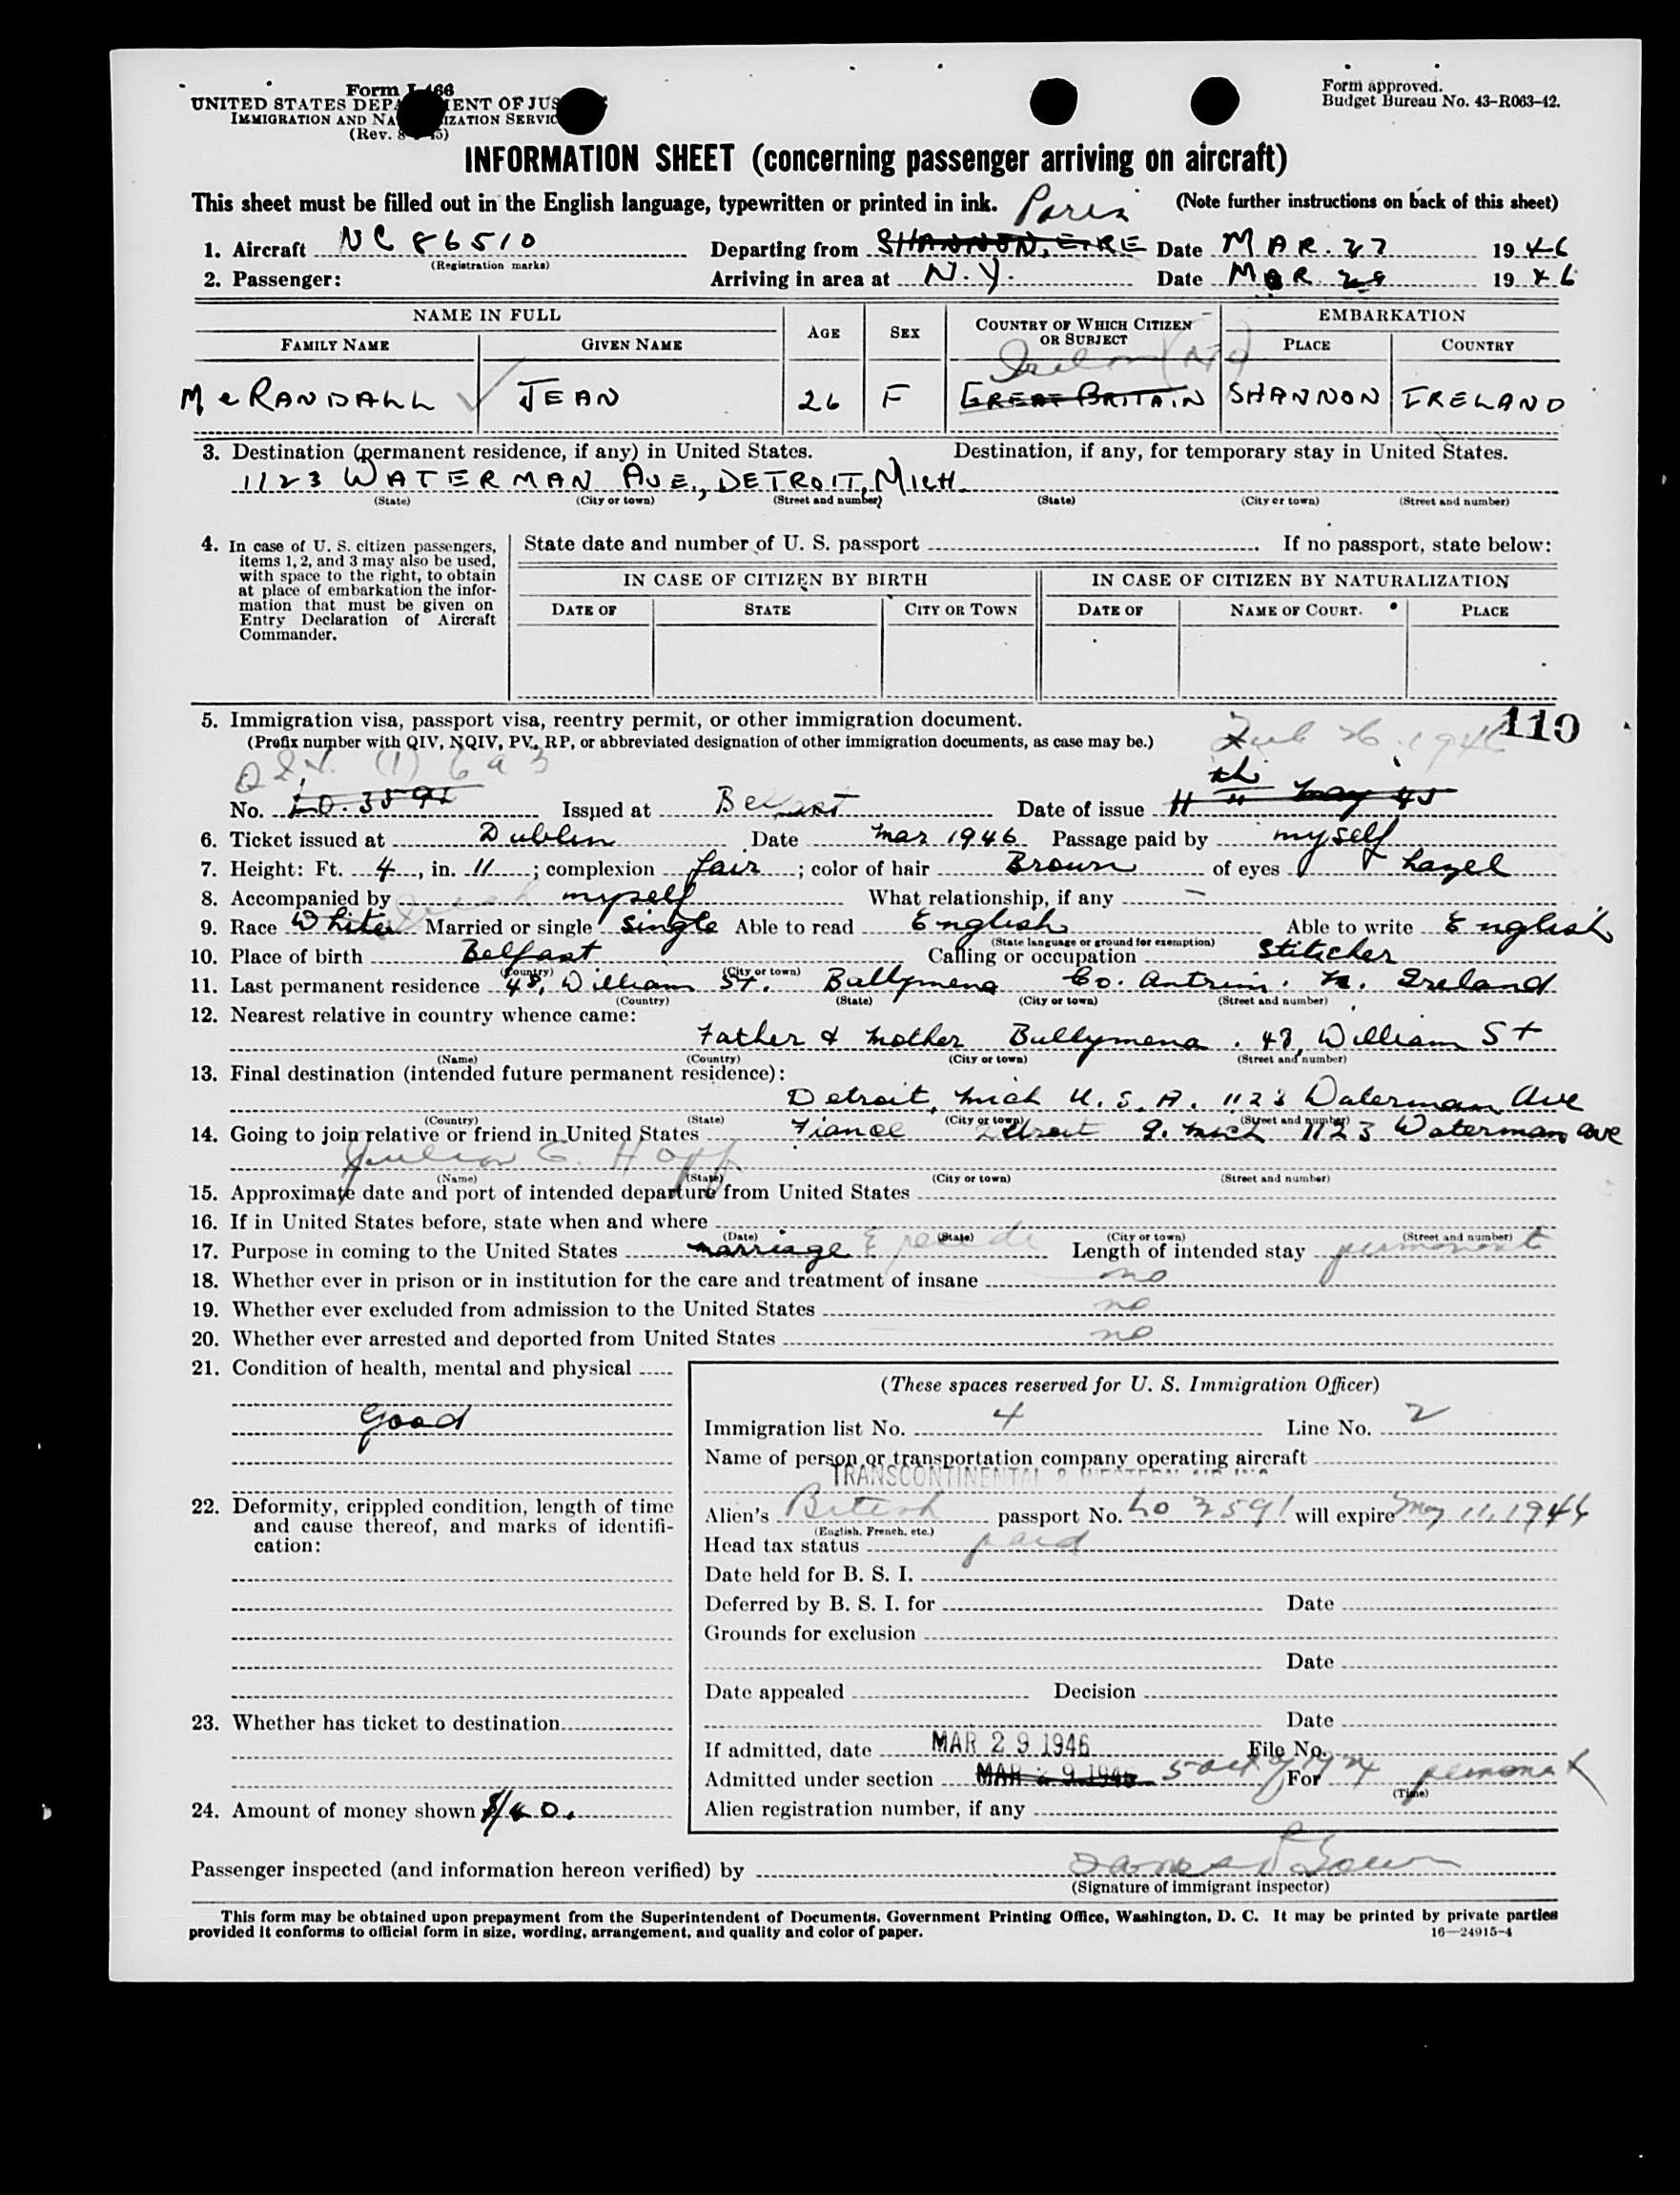 Form I-466
UNITED STATES DEPARTMENT OF JUSTICE
IMMIGRATION AND NATURALIZATION SERVICE
(Rev. 8 45)
Form approved.
Budget Bureau No. 43-R063-42.
INFORMATION SHEET (concerning passenger arriving on aircraft)
This sheet must be filled out in the English language, typewritten or printed in ink. (Note further instructions on back of this sheet)
Paris
1. Aircraft NC 86510 Departing from SHANNON, EIRE Date MAR. 27 1946
(Registration marks)
2. Passenger: Arriving in area at N.Y. Date MAR 1946
NAME IN FULL AGE SEX COUNTRY OF WHICH CITIZEN OR SUBJECT EMBARKATION
FAMILY NAME GIVEN NAME PLACE COUNTRY
McRANDALL JEAN 26 F GREAT BRITAIN SHANNON IRELAND
3. Destination (permanent residence, if any) in United States. Destination, if any, for temporary stay in United States.
1123 WATERMAN AVE., DETROIT, MICH.
(State) (City or town) (Street and number) (State) (City or town) (Street and number)
4. In case of U. S. citizen passengers, items 1, 2, and 3 may also be used, with space to the right, to obtain at place of embarkation the information that must be given on Entry Declaration of Aircraft Commander.
State date and number of U. S. passport If no passport, state below:
IN CASE OF CITIZEN BY BIRTH IN CASE OF CITIZEN BY NATURALIZATION
DATE OF STATE CITY OR TOWN DATE OF NAME OF COURT. PLACE
5. Immigration visa, passport visa, reentry permit, or other immigration document. 110
(Prefix number with QIV, NQIV, PV., RP, or abbreviated designation of other immigration documents, as case may be.) Feb 26, 1946
No. Issued at Belfast Date of issue 11 th May 45
6. Ticket issued at Dublin Date Mar 1946 Passage paid by myself
7. Height: Ft. 4, in. 11; complexion fair; color of hair Brown of eyes hazel
8. Accompanied by myself What relationship, if any –
9. Race White Married or single Single Able to read English Able to write English
(State language or ground for exemption)
10. Place of birth Belfast Calling or occupation Stitcher
(Country) (City or town)
11. Last permanent residence 48, William St. Ballymena Co. Antrim. N. Ireland
(Country) (State) (City or town) (Street and number)
12. Nearest relative in country whence came:
Father & Mother Ballymena. 48, William St
(Name) (Country) (City or town) (Street and number)
13. Final destination (intended future permanent residence):
Detroit, Mich U.S.A. 1123 Waterman Ave
(Country) (State) (City or town) (Street and number)
14. Going to join relative or friend in United States Fiance Detroit 9. Mich 1123 Waterman Ave
Hopf
(Name) (State) (City or town) (Street and number)
15. Approximate date and port of intended departure from United States
16. If in United States before, state when and where
(Date) (State) (City or town) (Street and number)
17. Purpose in coming to the United States marriage & reside Length of intended stay permanent
18. Whether ever in prison or in institution for the care and treatment of insane no
19. Whether ever excluded from admission to the United States no
20. Whether ever arrested and deported from United States no
21. Condition of health, mental and physical
Good
22. Deformity, crippled condition, length of time and cause thereof, and marks of identification:
23. Whether has ticket to destination
24. Amount of money shown
(These spaces reserved for U. S. Immigration Officer)
Immigration list No. 4 Line No. 2
Name of person or transportation company operating aircraft
TRANSCONTINENTAL & WESTERN AIR INC
Alien's British passport No. will expire May 11, 1946
(English, French, etc.)
Head tax status paid
Date held for B. S. I.
Deferred by B. S. I. for Date
Grounds for exclusion
Date
Date appealed Decision
Date
If admitted, date MAR 29 1946 File No.
Admitted under section MAR 29 1946 5 act of 1924 For permanent
(Time)
Alien registration number, if any
Passenger inspected (and information hereon verified) by
(Signature of immigrant inspector)
This form may be obtained upon prepayment from the Superintendent of Documents, Government Printing Office, Washington, D. C. It may be printed by private parties
provided it conforms to official form in size, wording, arrangement, and quality and color of paper. 16—24915-4